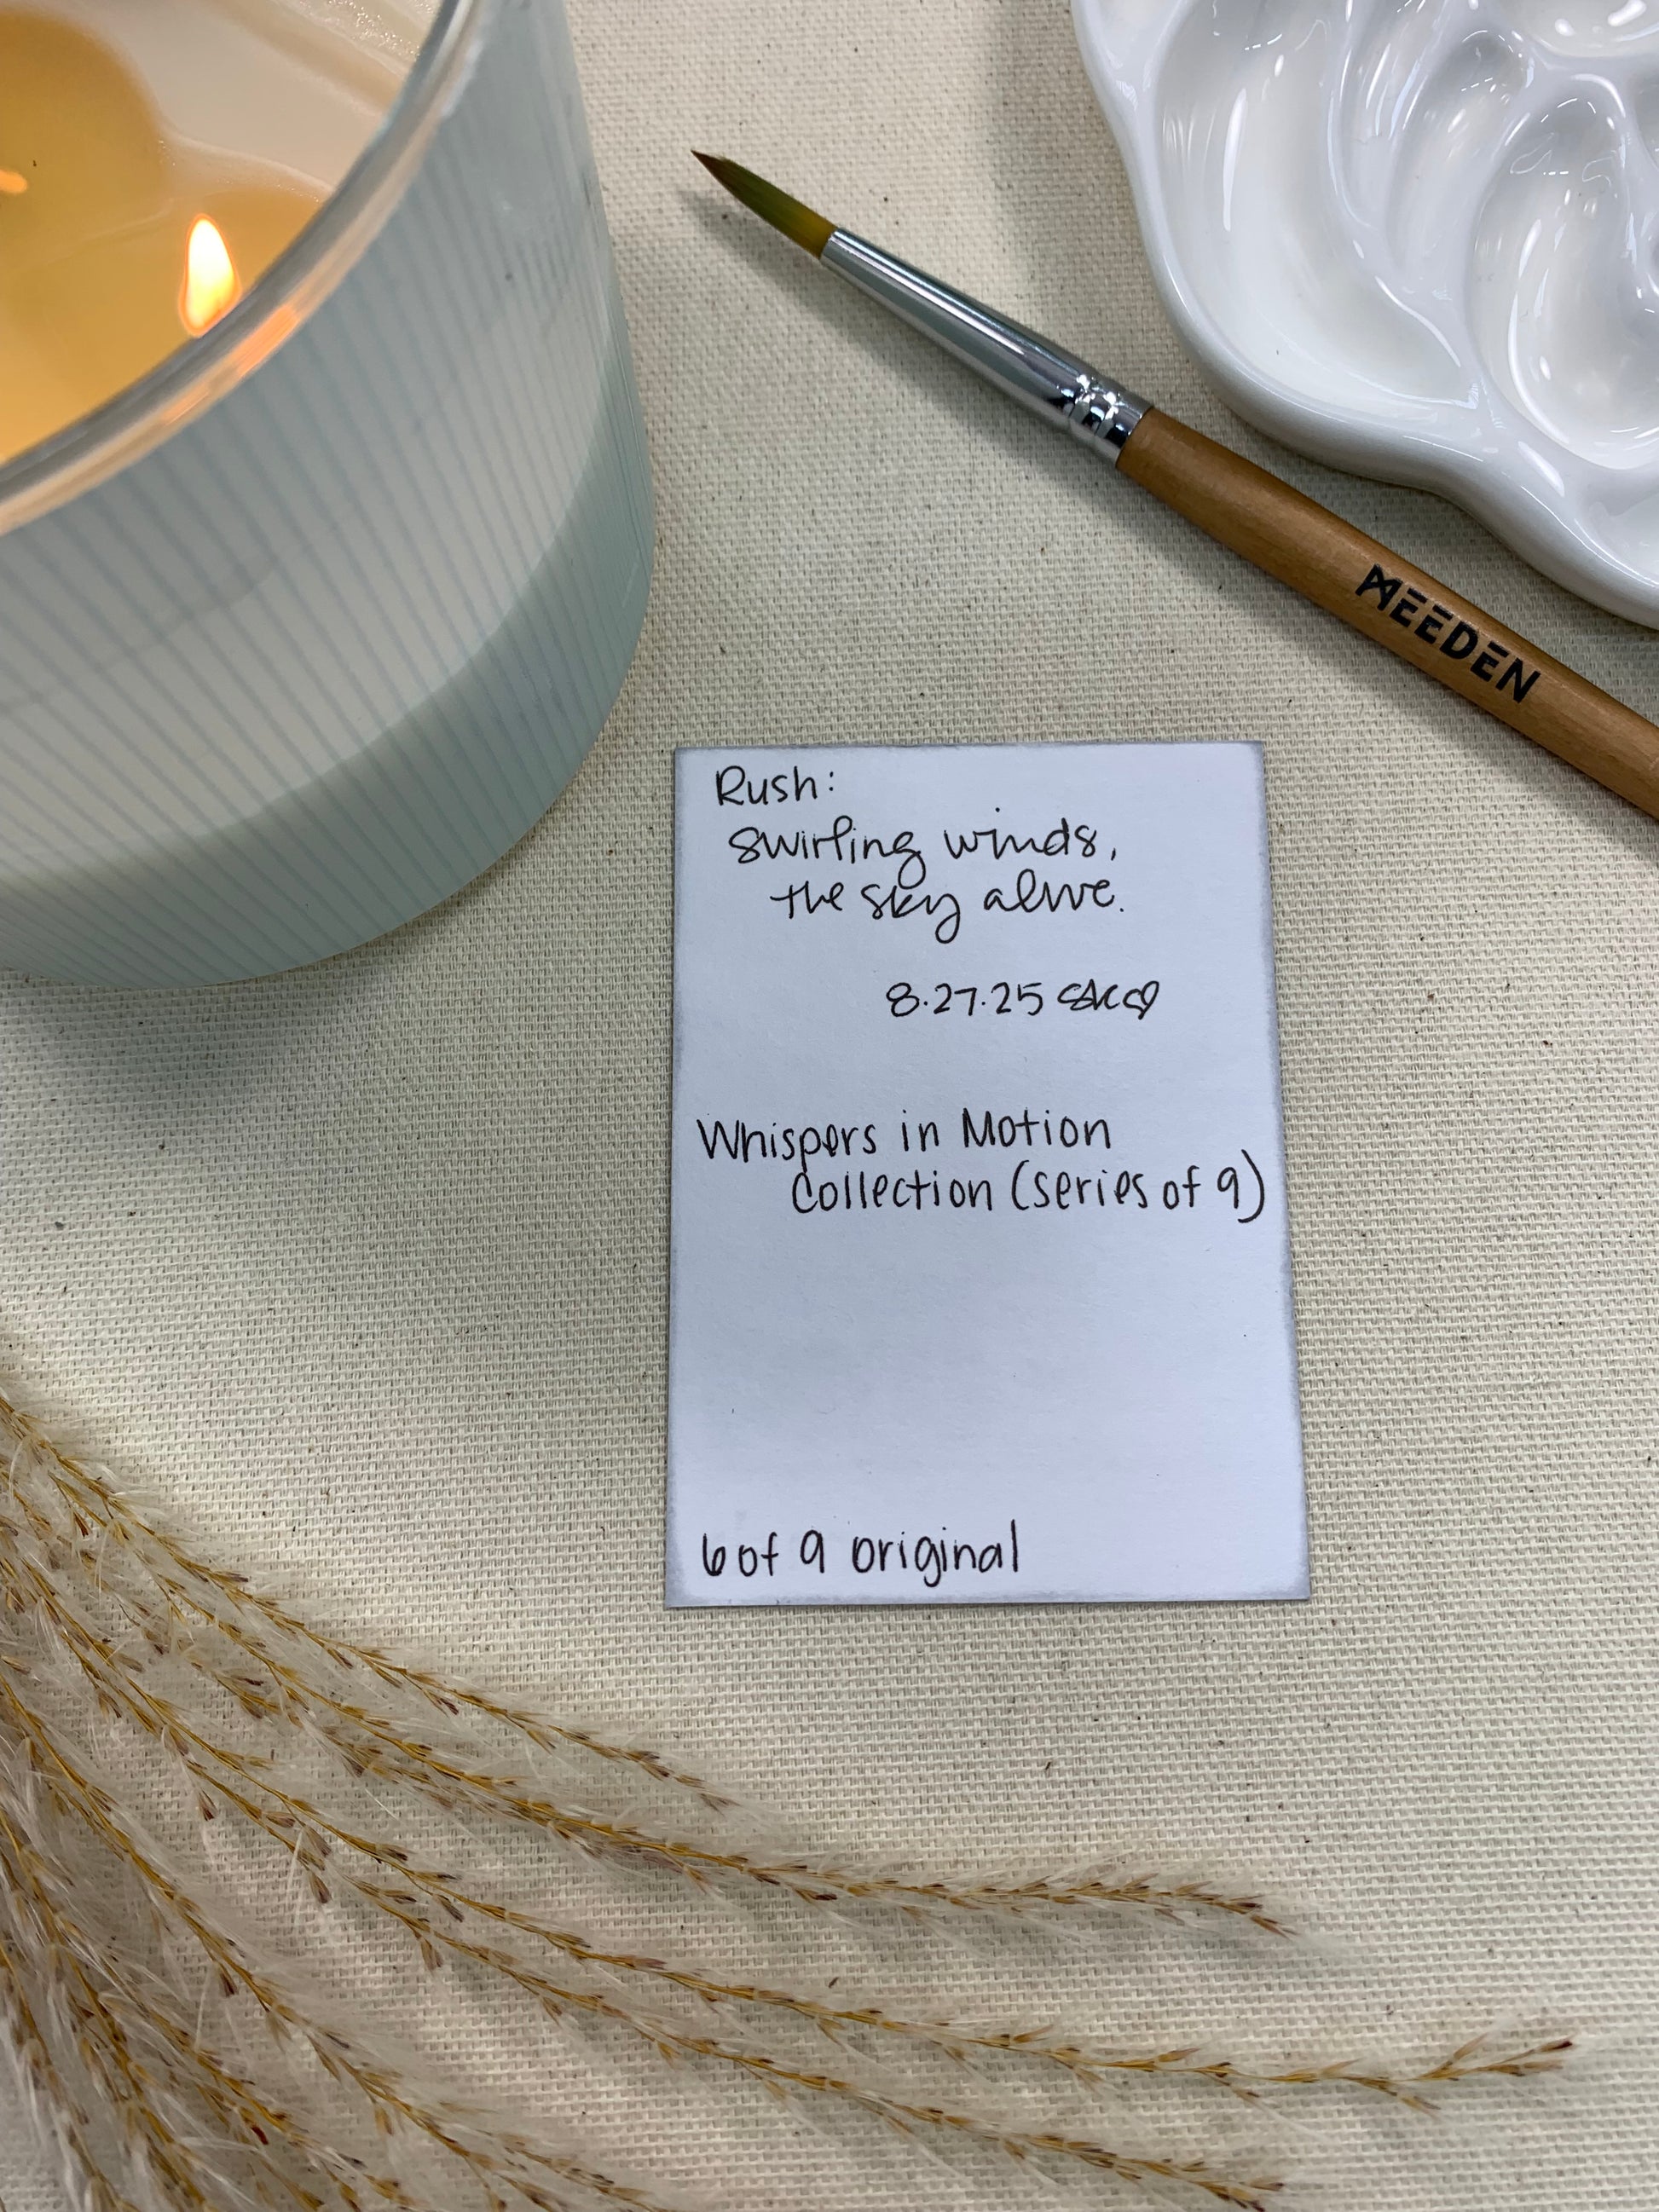 MEEDEN
Rush:
swirling winds,
the sky alive.
8.27.25
Whispers in Motion
Collection (series of 9)
6 of 9 original